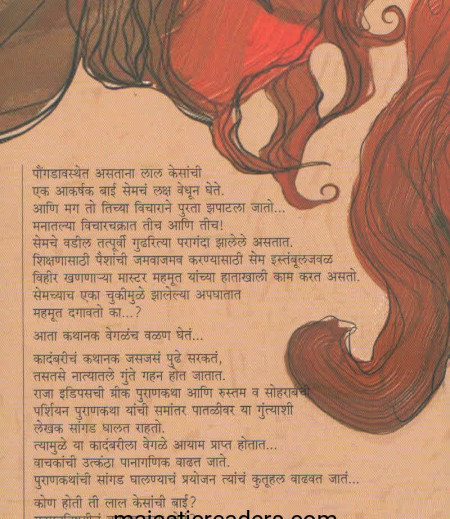 पौंगडावस्थेत असताना लाल केसांची
एक आकर्षक बाई सेमचं लक्ष वेधून घेते.
आणि मग तो तिच्या विचाराने पुरता झपाटला जातो...
मनातल्या विचारचक्रात तीच आणि तीच!
सेमचे वडील तत्पूर्वी गूढरित्या परागंदा झालेले असतात.
शिक्षणासाठी पैशांची जमवाजमव करण्यासाठी सेम इस्तंबूलजवळ
विहीर खणणाऱ्या मास्टर महमूत यांच्या हाताखाली काम करत असतो.
सेमच्याच एका चुकीमुळे झालेल्या अपघातात
महमूत दगावतो का...?
आता कथानक वेगळंच वळण घेतं...
कादंबरीचं कथानक जसजसं पुढे सरकतं,
तसतसे नात्यातले गुंते गहन होत जातात.
राजा इडिपसची ग्रीक पुराणकथा आणि रुस्तम व सोहराबची
पर्शियन पुराणकथा यांची समांतर पातळीवर या गुंत्याशी
लेखक सांगड घालत राहतो.
त्यामुळे या कादंबरीला वेगळे आयाम प्राप्त होतात...
वाचकांची उत्कंठा पानागणिक वाढत जाते.
पुराणकथांची सांगड घालण्याचं प्रयोजन त्यांचं कुतूहल वाढवत जातं...
कोण होती ती लाल केसांची बाई?
majesticreaders.com